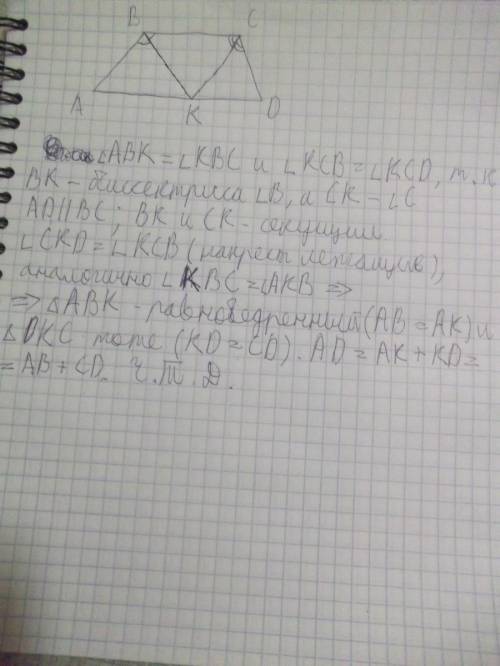 B C
A K D
∠ABK = ∠KBC и ∠KCB = ∠KCD, т.к
BK - биссектриса ∠B, а CK - ∠C
AD||BC; BK и CK - секущии
∠CKD = ∠KCB (накрест лежащие),
аналогично ∠KBC = ∠AKB =>
=> △ABK - равнобедренный (AB = AK) и
△DKC тоже (KD = CD). AD = AK + KD =
= AB + CD. Ч.Т.Д.